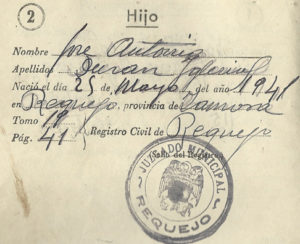 2
Hijo
Nombre Jose Antonio
Apellidos Duran Iglesias
Nació el día 25 de Mayo del año 1941
en Requejo, provincia de Zamora
Tomo 19
Pág. 41 Registro Civil de Requejo
Sello del Registro
JUZGADO MUNICIPAL
REQUEJO